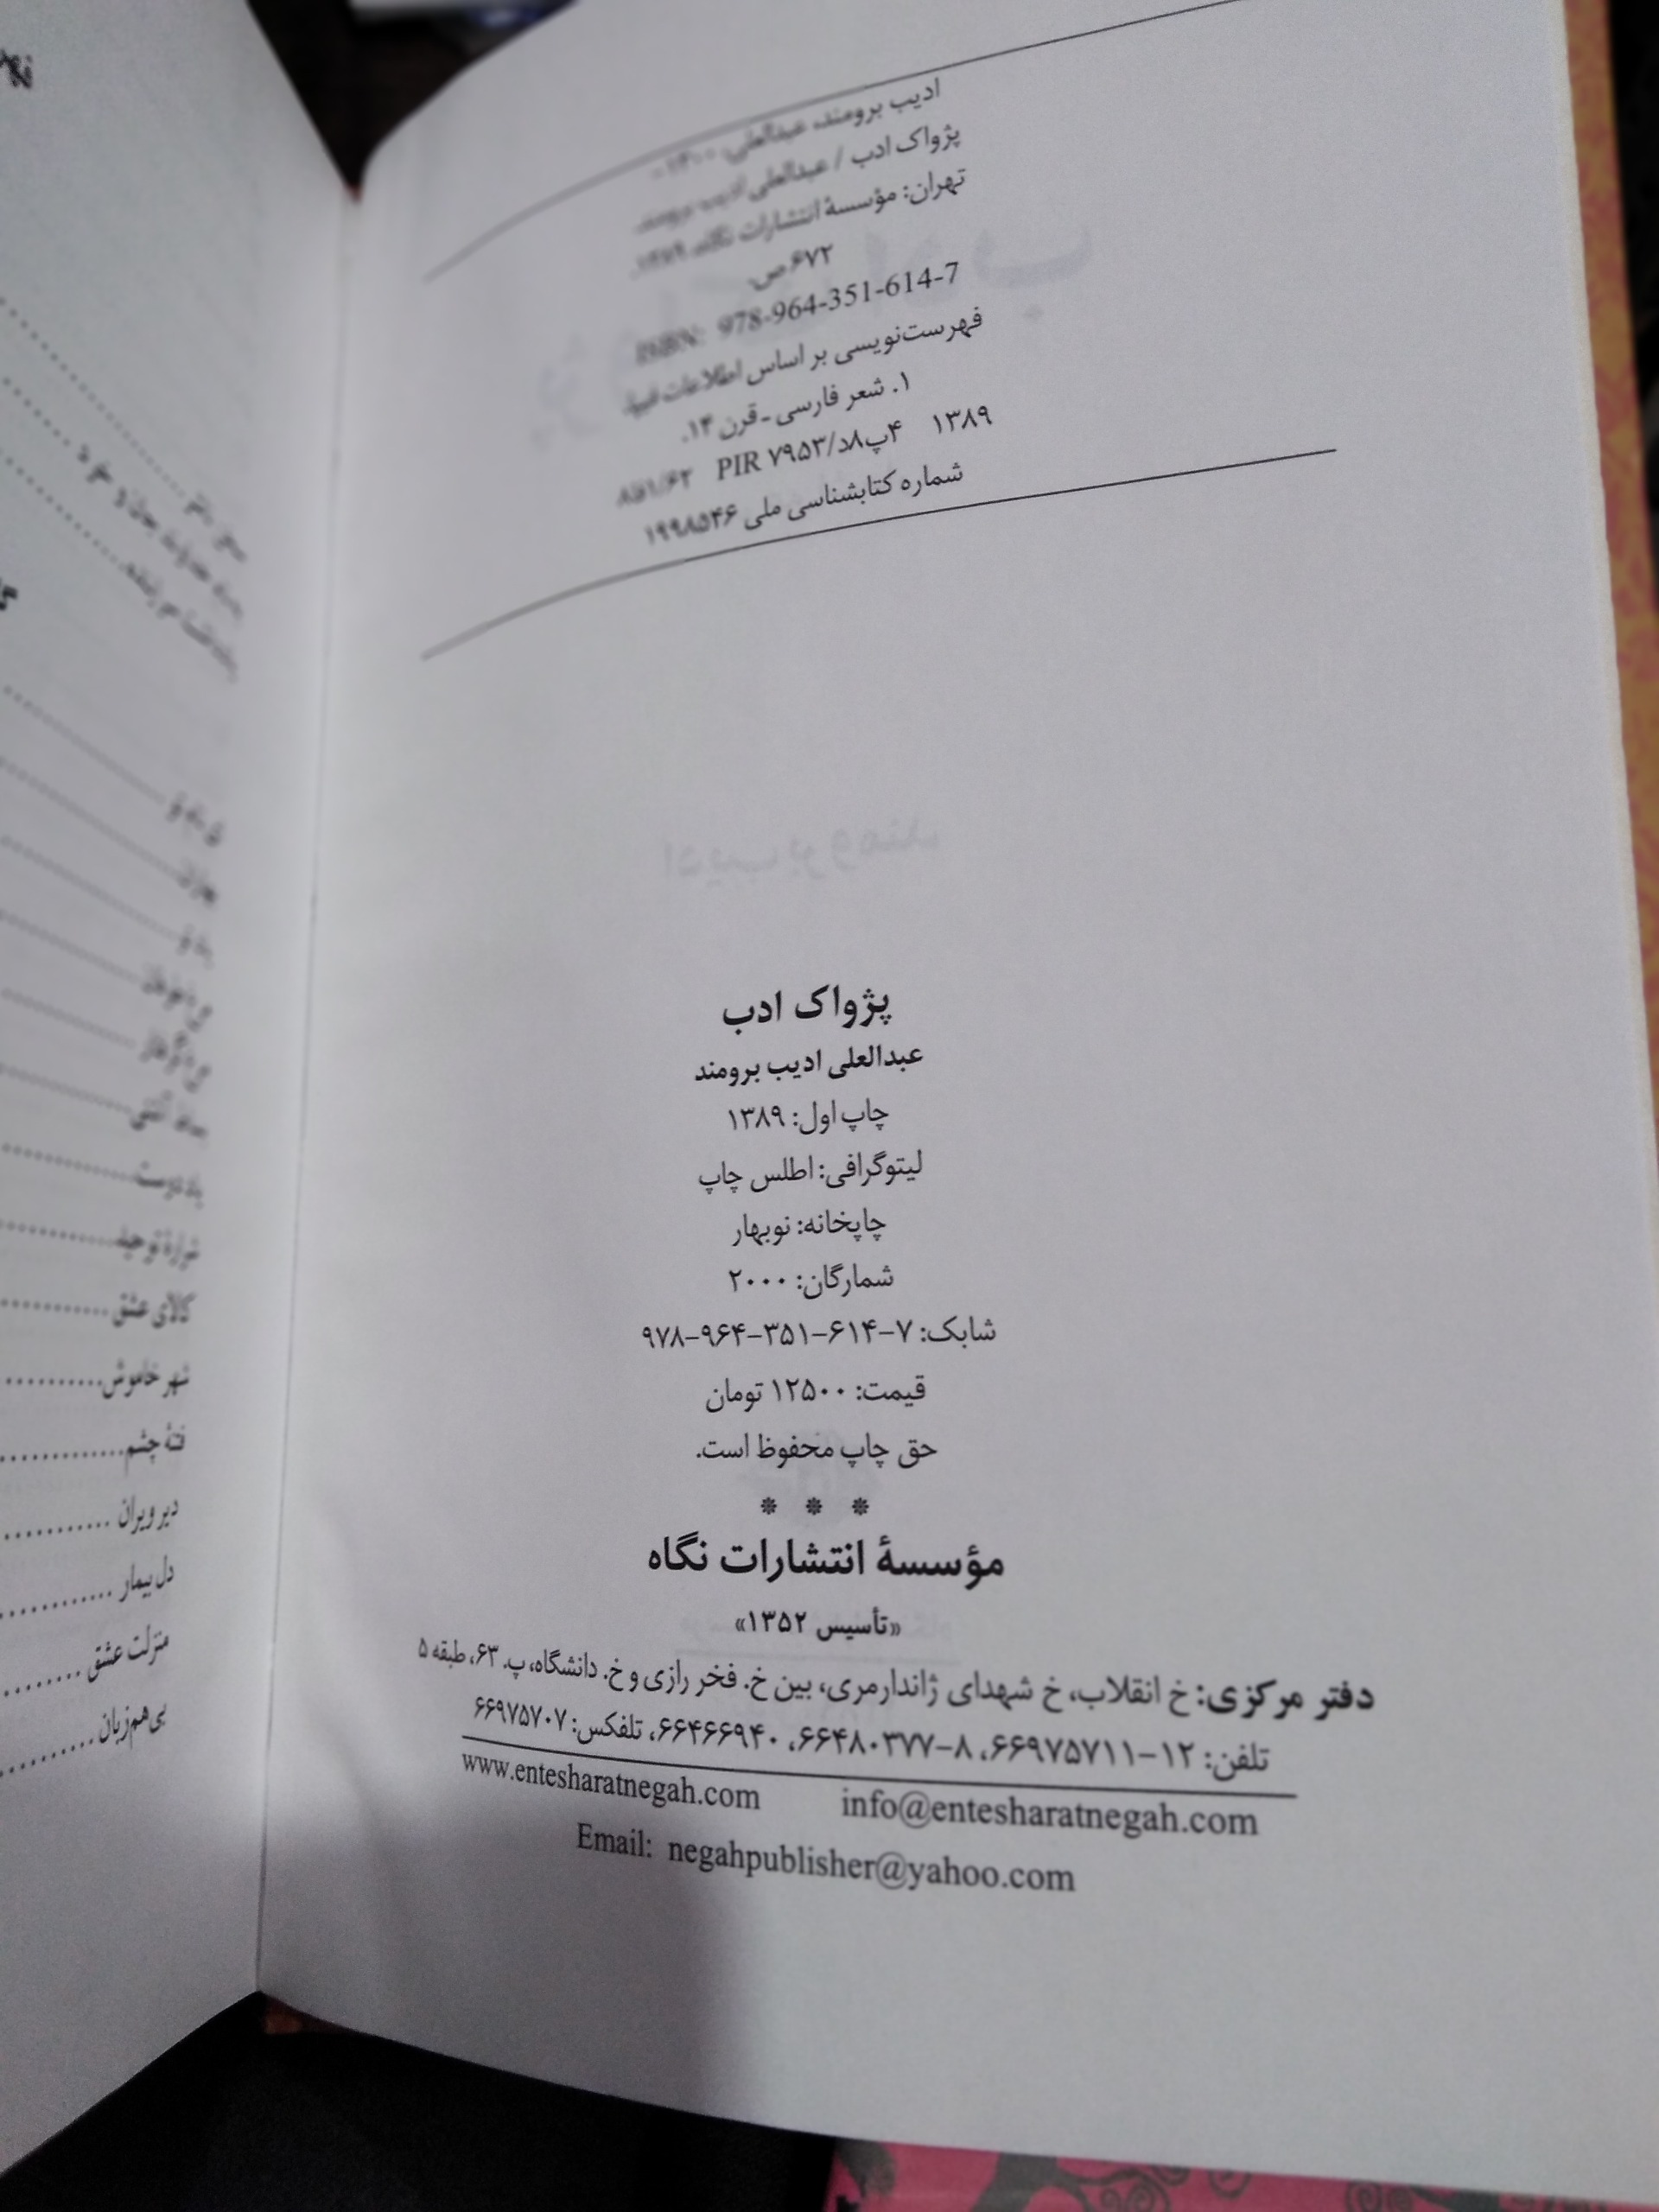 ادیب برومند، عبدالعلی،
پژواک ادب / عبدالعلی ادیب برومند.
تهران: مؤسسهٔ انتشارات نگاه، ۱۳۸۹.
۶۷۲ص.
ISBN: 978-964-351-614-7
فهرست‌نویسی بر اساس اطلاعات فیپا.
۱. شعر فارسی ـ قرن ۱۴.
۱۳۸۹ ۴پ۸د/۷۹۵۳ PIR ۸فا۱/۶۲
شماره کتابشناسی ملی ۱۹۹۸۵۴۶
پژواک ادب
عبدالعلی ادیب برومند
چاپ اول: ۱۳۸۹
لیتوگرافی: اطلس چاپ
چاپخانه: نوبهار
شمارگان: ۲۰۰۰
شابک: ۷-۶۱۴-۳۵۱-۹۶۴-۹۷۸
قیمت: ۱۲۵۰۰ تومان
حق چاپ محفوظ است.
* * *
مؤسسهٔ انتشارات نگاه
«تأسیس ۱۳۵۲»
دفتر مرکزی: خ انقلاب، خ شهدای ژاندارمری، بین خ. فخر رازی و خ. دانشگاه، پ. ۶۳، طبقه ۵
تلفن: ۱۲-۶۶۹۷۵۷۱۱، ۸-۶۶۴۸۰۳۷۷، ۶۶۴۶۶۹۴۰، تلفکس: ۶۶۹۷۵۷۰۷
www.entesharatnegah.com info@entesharatnegah.com
Email: negahpublisher@yahoo.com
یاد دوست
شرارهٔ توحید
کالای عشق
شهر خاموش
فتنهٔ چشم
دیر ویران
دل بیمار
منزلت عشق
بی‌هم‌زبان